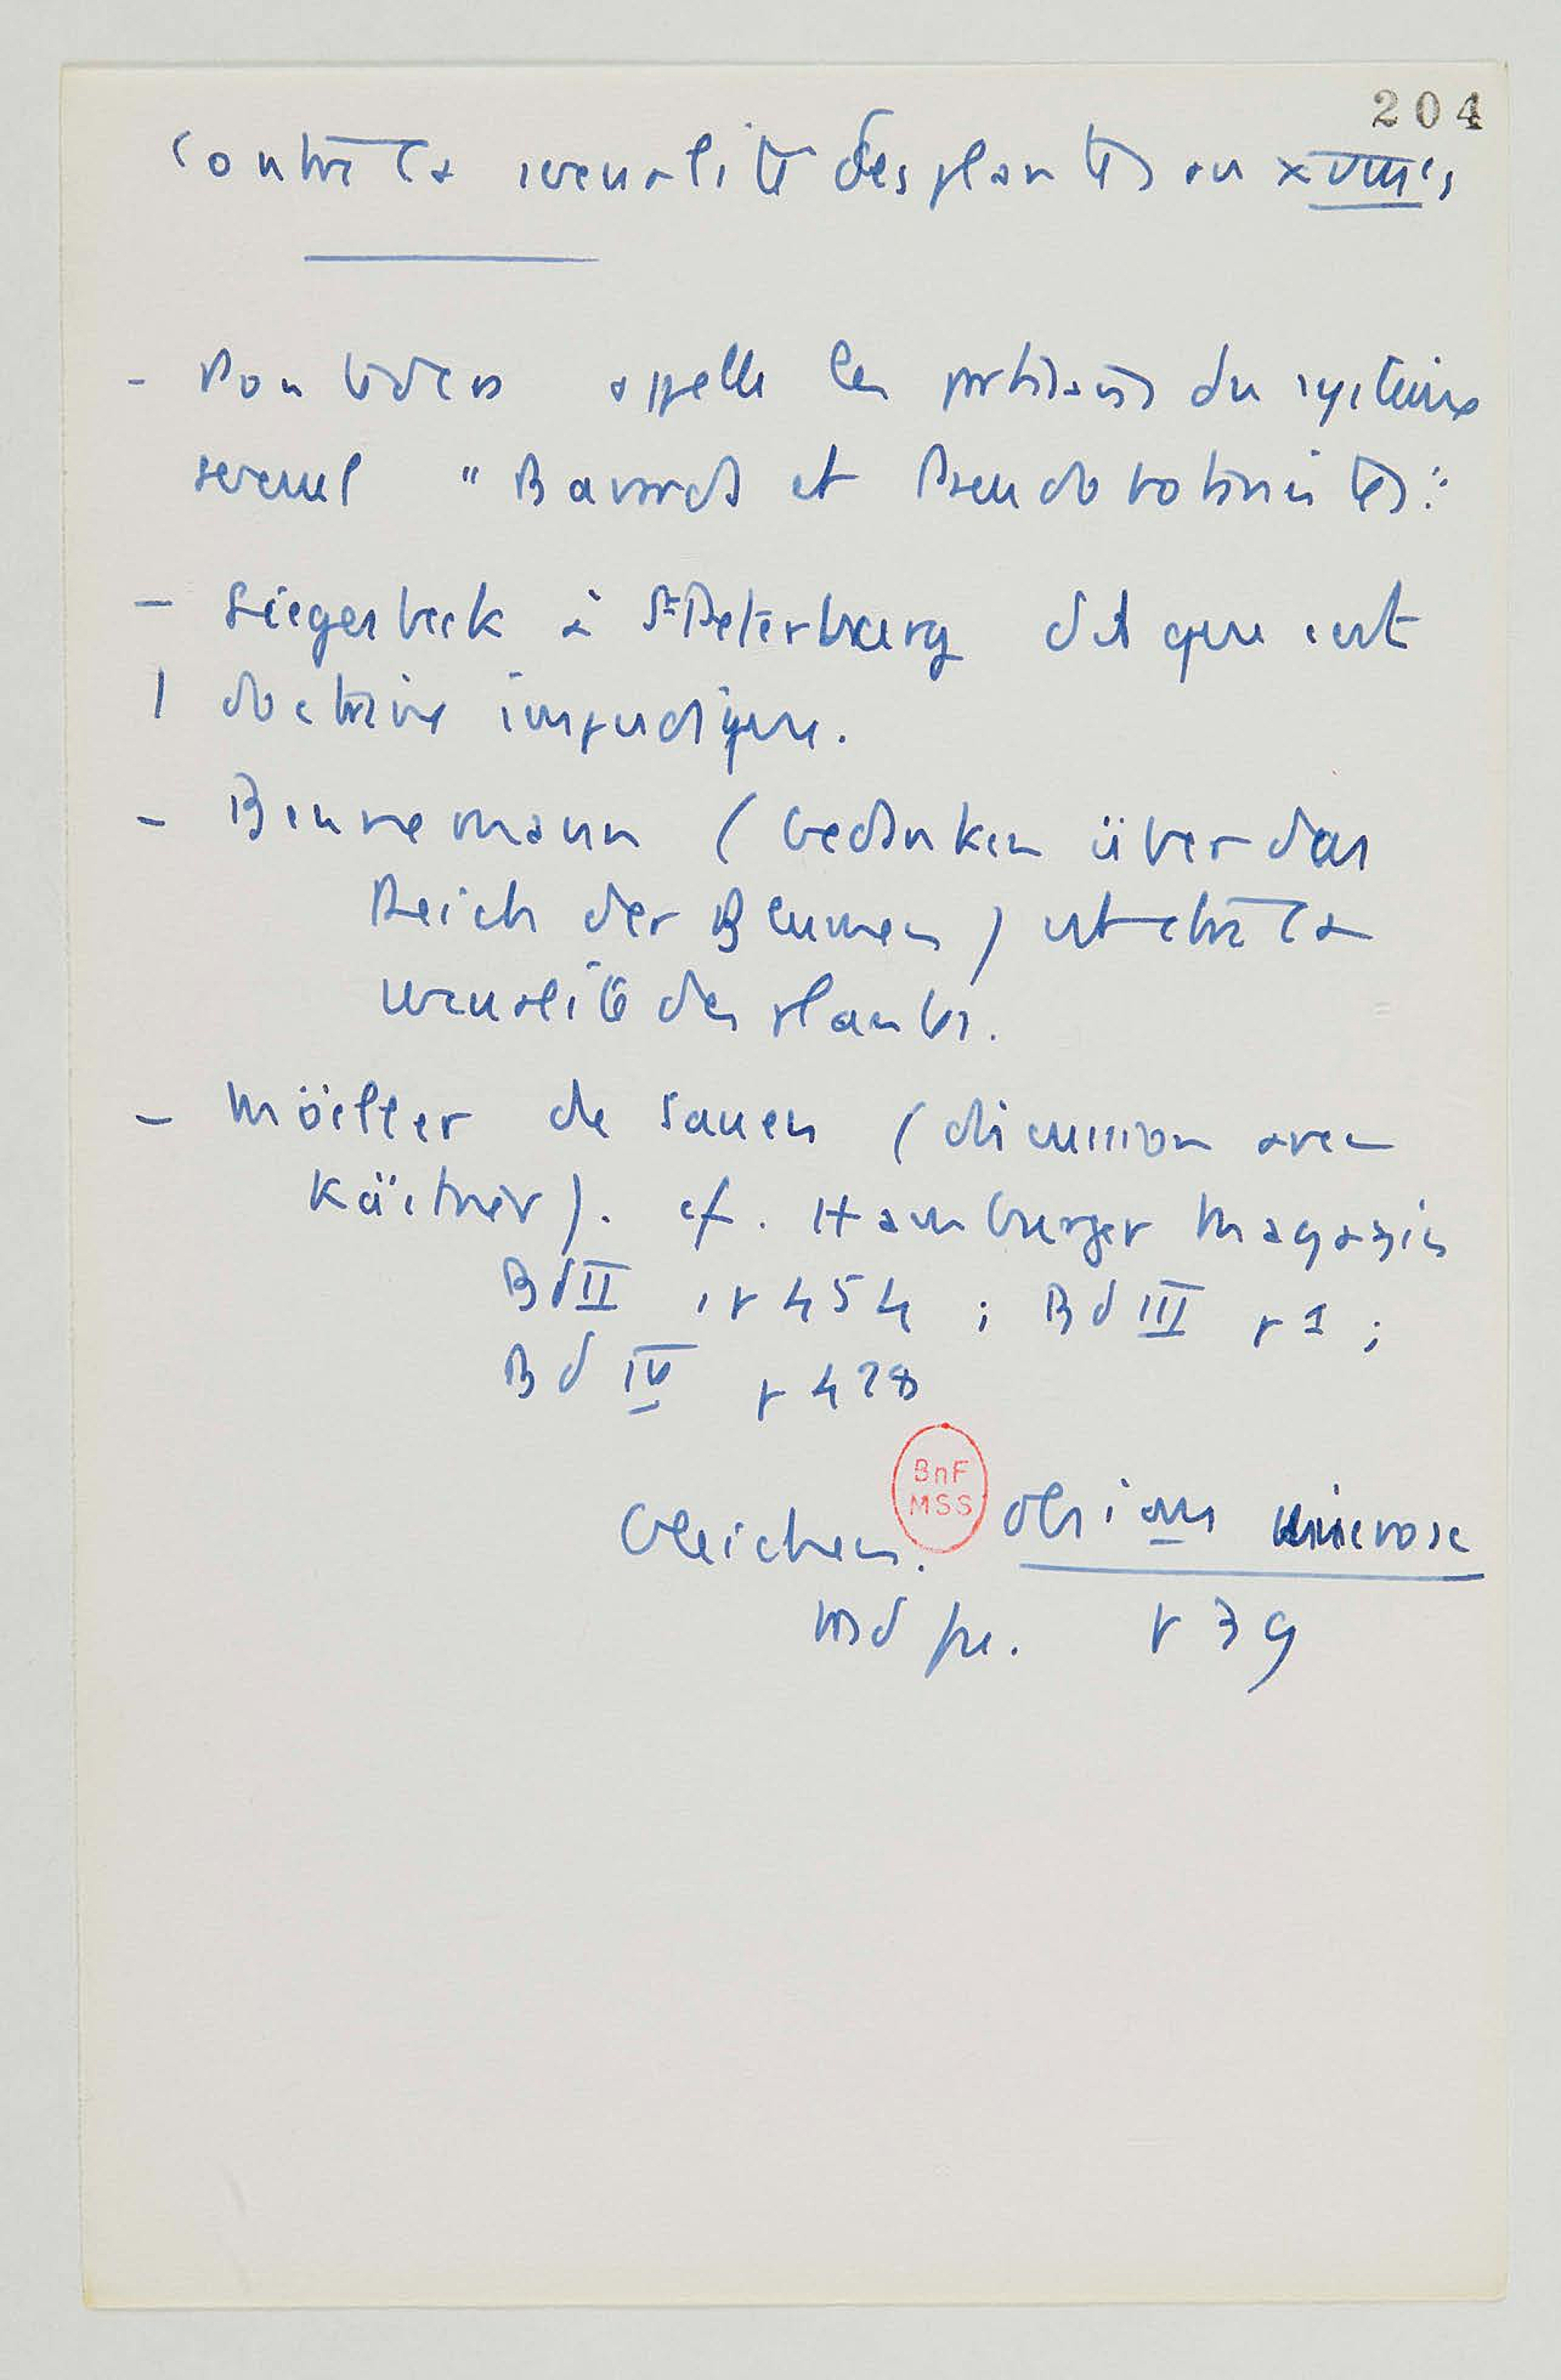 204
Contre la sexualité des plantes au XVIIIe s
- Pontedera appelle les partisans du système
sexuel "Bavards et Pseudobotanistes".
- Siegesbeck à St Petersburg dit que c'est
1 doctrine impudique.
- Bennemann (Gedanken über das
Reich der Blumen) est contre la
sexualité des plantes.
- Möeller de Sauen (discussion avec
Kästner). cf. Hamburger Magazin
Bd II, p 454 ; Bd III p 1 ;
Bd IV p 428
BnF
MSS
Gleichen. Obs. microsc
p 39